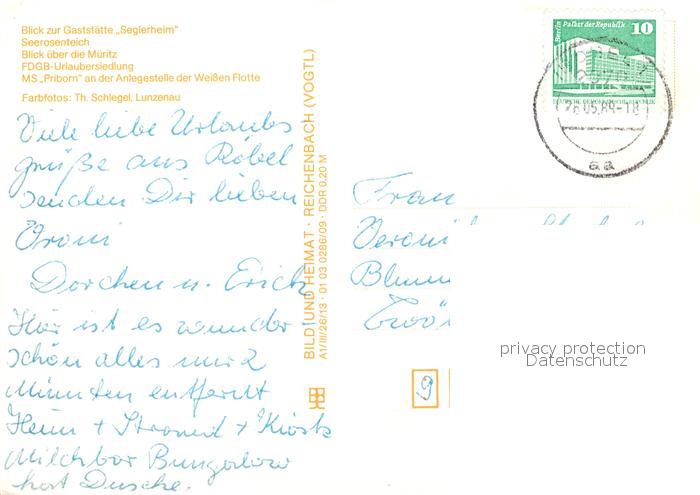 Blick zur Gaststätte „Seglerheim"
Seerosenteich
Blick über die Müritz
FDGB-Urlaubersiedlung
MS „Priborn" an der Anlegestelle der Weißen Flotte
Farbfotos: Th. Schlegel, Lunzenau
Viele liebe Urlaubs
grüße aus Röbel
senden Dir lieben
Dorchen u. Erich
Hier ist es wunder
schön alles nur 2
Minuten entfernt
Heim + Strand + Kiosk
Milchbar Bungalow
hat Dusche.
BILD UND HEIMAT · REICHENBACH (VOGTL)
A1/III/26/13 · 01 03 0286/09 · DDR 0,20 M
Berlin Palast der Republik
10
DEUTSCHE DEMOKRATISCHE REPUBLIK
05.89-18
aa
Frau
Blum
9
privacy protection
Datenschutz